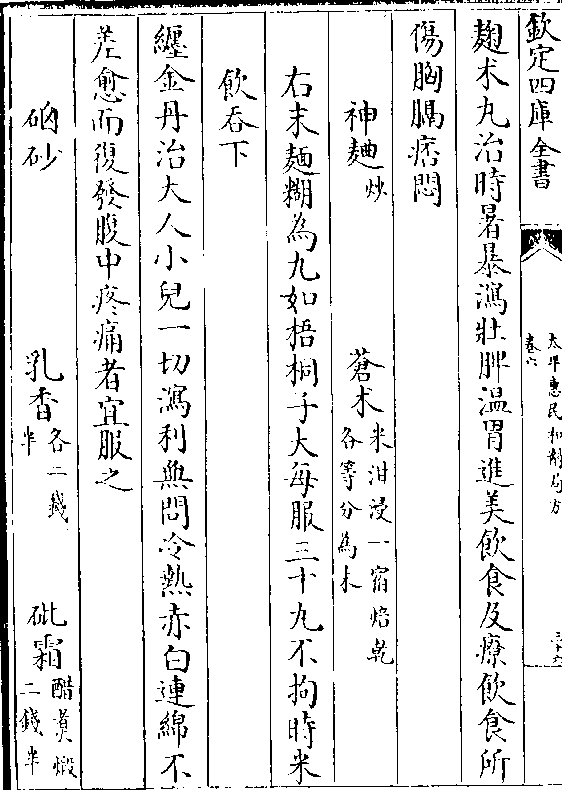 欽定四庫全書
太平惠民和劑局方
卷六
三十六
麹朮丸治時暑暴瀉壯脾温胃進美飲食及療飲食所
傷胸膈痞悶
神麯炒 蒼朮米泔浸一宿焙乾各等分為末
右末麵糊為丸如梧桐子大每服三十丸不拘時米
飲吞下
纏金丹治大人小兒一切瀉利無問冷熱赤白連綿不
差愈而復發腹中疼痛者宜服之
硇砂 乳香各二錢半 砒霜醋煑煅二錢半